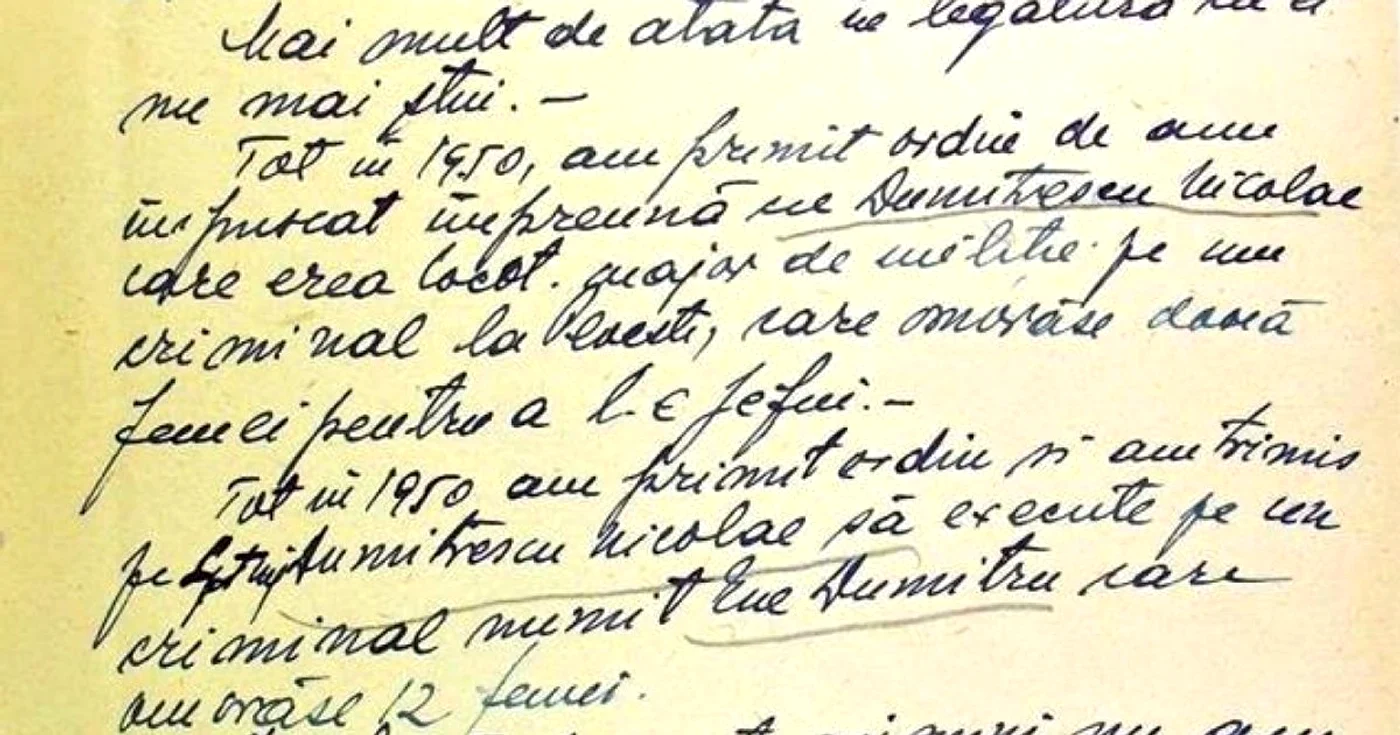 Mai mult de atata in legatură cu ei
nu mai știi. —
Tot in 1950, am primit ordin de am
impuscat impreună cu Dumitrescu Nicolae
care erea locot. major de militie pe un
criminal la Ploesti, care omorâse două
femei pentru a l-e jefui. —
Tot in 1950 am primit ordin si am trimis
pe Dumitrescu Nicolae să execute pe un
criminal numit Ene Dumitru care
omorâse 12 femei.